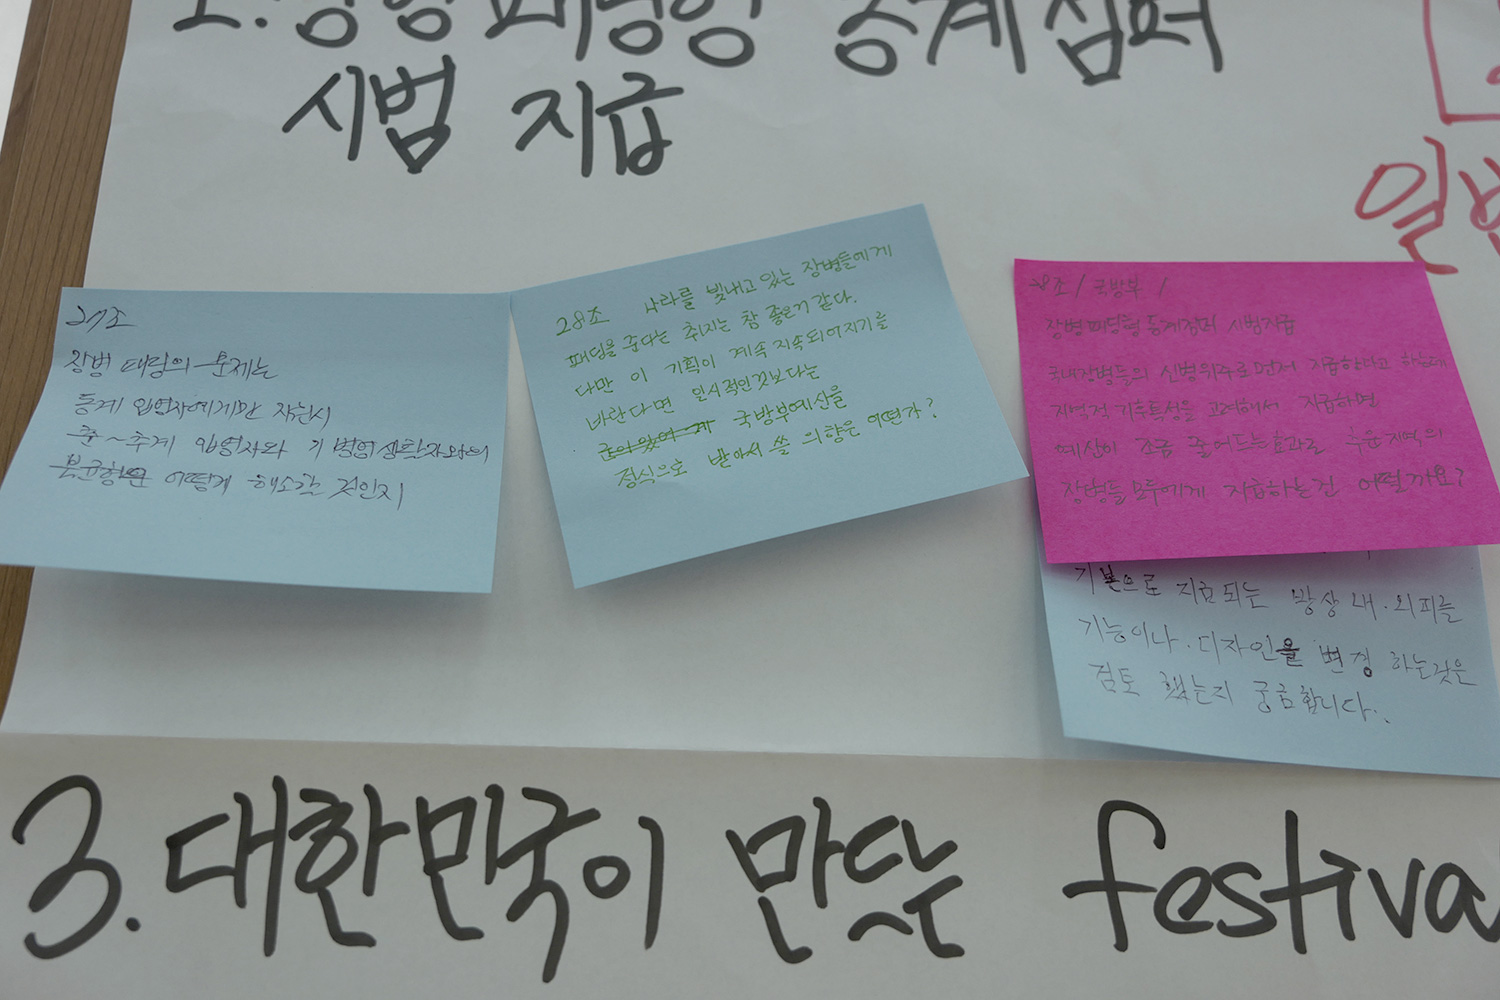 2. 장병 패딩형 동계점퍼
시범 지급
일반
27조
장병 패딩의 문제는
동계 입영자에게만 지급시
춘~추계 입영자와 기 병영생활자와의
불균형은 어떻게 해소할 것인지
28조 나라를 빛내고 있는 장병들에게
패딩을 준다는 취지는 참 좋은거 같다.
다만 이 기획이 계속 지속되어지기를
바란다면 일시적인것보다는
국방부예산을
정식으로 받아서 쓸 의향은 어떤가?
28조 / 국방부 /
장병패딩형 동계점퍼 시범지급
국내장병들의 신병위주로 먼저 지급한다고 하는데
지역적 기후특성을 고려해서 지급하면
예산이 조금 줄어드는효과로 추운지역의
장병들 모두에게 지급하는건 어떨까요?
기본으로 지급되는 방상 내·외피를
기능이나·디자인을 변경 하는것은
검토 했는지 궁금합니다.
3. 대한민국이 만드는 festiva